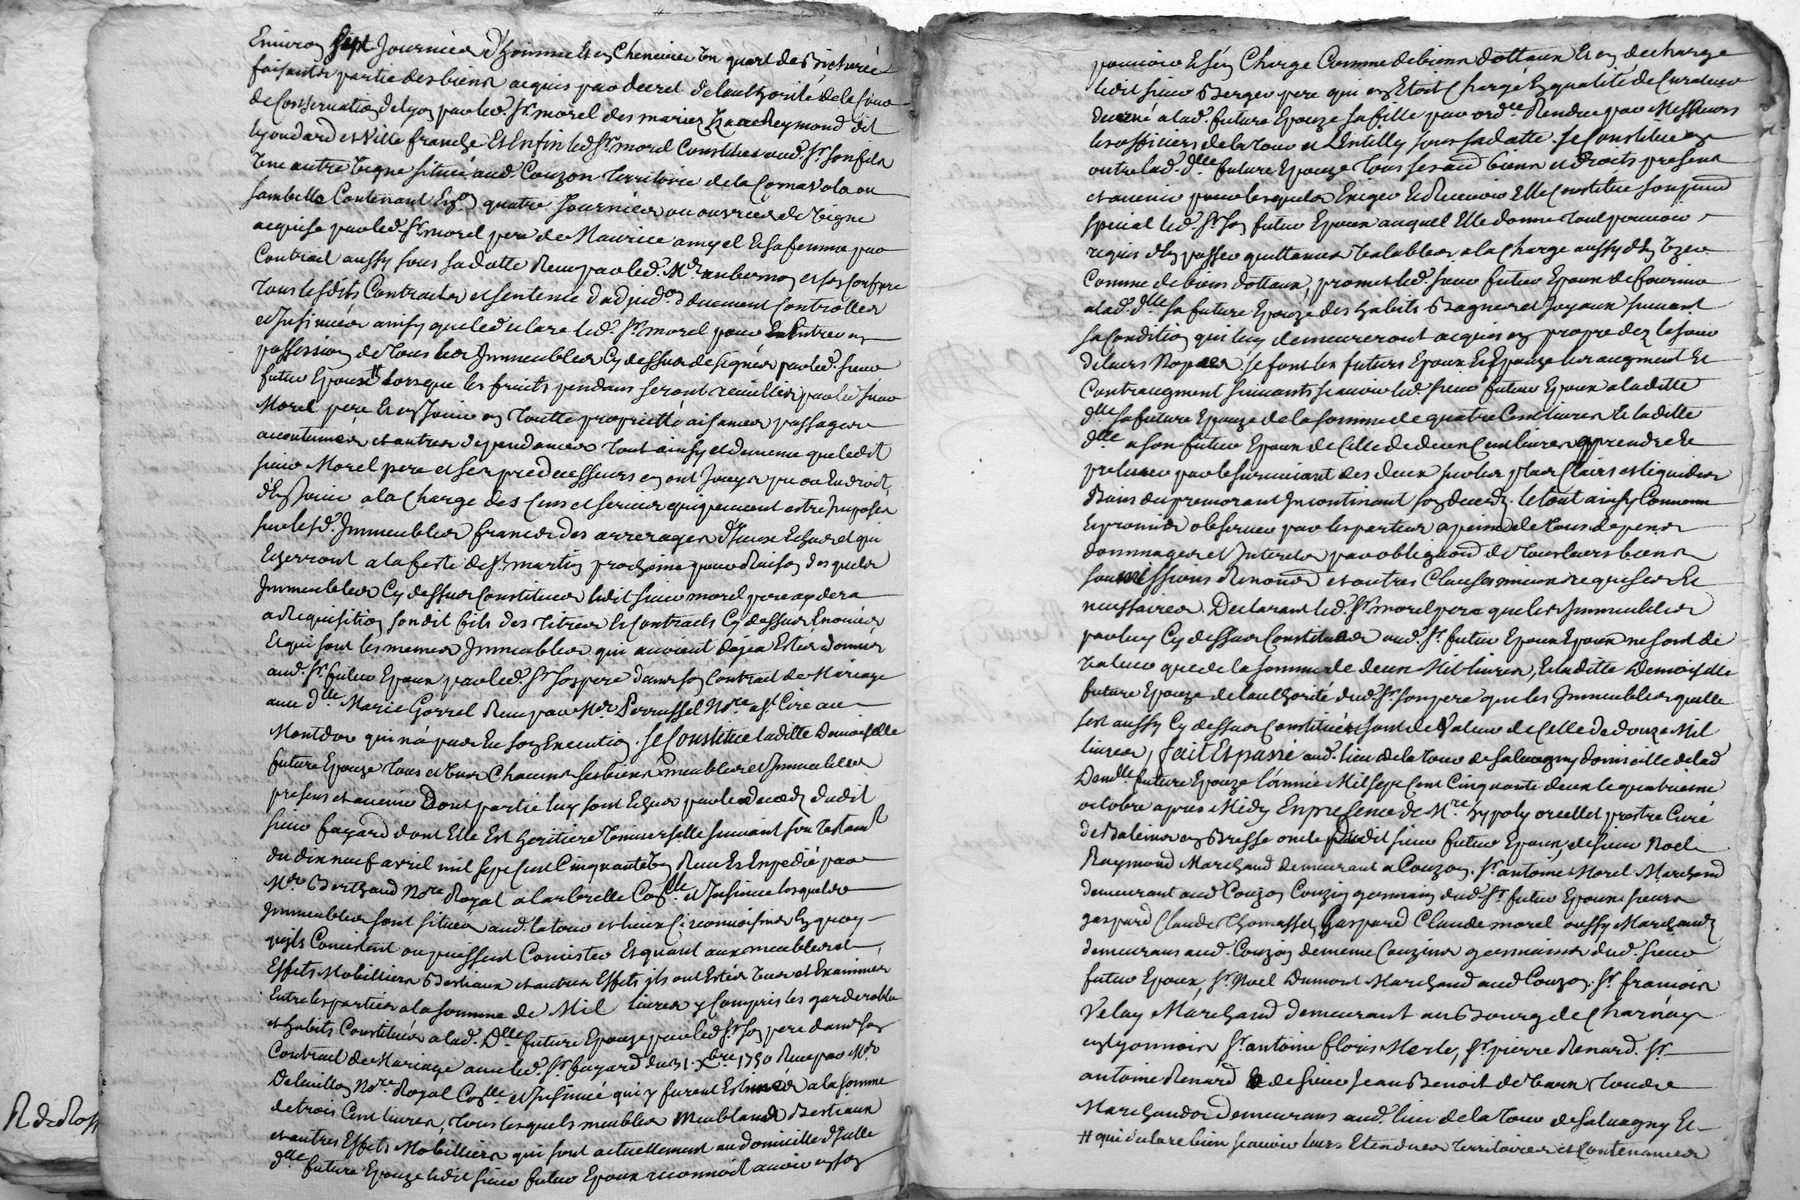 Environ sept Journées d'homme Et en Chenevier un quart de Bicherée
faisants partie des biens acquis par decret de lauthorité de la Cour
de Conservation de Lyon par led. Sr. morel des mariez Reymond dit
Lyonnard et Ville franche Et Enfin led. Sr. morel Constitue aud. Sr. son fils
Une autre Vigne située aud. Couzon Territoire de la Comavola ou
Contenant Enon. quatre Journées ou ouvrées de Vigne
acquise par led. Sr. morel pere de Maurice amyel Et sa femme par
Contract aussy sous sa datte Receu par led. Me.
Tous lesdits Contracts et sentence d'adjudon. duement Controllés
et Insinués ainsy que le declare led. Sr. morel pour Entrer en
possession de tous les Immeubles Cy dessus designés par led. sieur
futur Epoux # lorsque les fruits pendans seront recueillis par led. sieur
Morel pere Et en Jouir en toutte proprietté aisances passages
acoutumées et autres dependances tout ainsy et de meme que ledit
sieur Morel pere et ses predecesseurs en ont Jouy ou pu ou du droit
d'En Jouir a la Charge des Cens et servis qui peuvent estre Imposés
sur lesd. Immeubles francs des arrerages d'Iceux Et qui
Echerront a la feste de St. martin prochaine pour Raison desquels
Immeubles Cy dessus Constitués ledit sieur morel pere aydera
a Requisition sondit fils des Titres et Contracts Cy dessus Enoncés
Et qui sont les memes Immeubles qui avoient déja Estés donnés
aud. Sr. futur Epoux par led. Sr. son pere dans son Contract de Mariage
avec dlle. Marie Gorrel Receu par Me. Perrussel Nore. a St. Cire au
Montdor qui n'a pas Eu son Execution. Se Constitue laditte Demoiselle
future Epouze tous et tous Chacuns ses biens meubles et Immeubles
presens et avenir Dont partie luy sont Echus par le deceds dudit
sieur fayard dont Elle Est heritiere universelle suivant son Testamt.
du dix neuf avril mil sept Cent Cinquante Un Receu Et Expedié par
Me. Berthaud Nore. Royal a larbrelle Conlle. et Insinué lesquels
Immeubles sont situés aud. la tour et lieux Circonvoisins En quoy
quils Consistent ou puissent Consister Et quant aux meubles et
Effets Mobilliers Bestiaux et autres Effets ils ont Estés vus et Examinés
Entre les parties a la somme de Mil livres y Compris les garderobbe
et habits Constitués a lad. Dlle. future Epouze par led. Sr. son pere dans son
Contract de Mariage avec led. Sr. fayard du 31. Xbre. 1750 Receu par Me.
Nore. Royal Conlle. et Insinué qui y furent Estimés a la somme
de trois Cent livres, Tous lesquels meubles meublans Bestiaux
et autres Effets Mobilliers qui sont actuellement au domicille d'Icelle
dlle. future Epouze ledit sieur futur Epoux reconnoit avoir en son
pouvoir Et s'En Charge Comme de biens dottaux Et En decharge
ledit sieur Berger pere qui En Etoit Chargé En qualité de Curateur
decerné a lad. future Epouze sa fille par ordce. Rendue par Messieurs
les officiers de la Tour et Lentilly sous sa datte. Se Constitue en
outre lad. dlle. future Epouze tous sesaud. biens et droits presens
et avenir pour lesquels Exiger et Recevoir Elle Constitue son procur.
special led. Sr. son futur Epoux auquel Elle donne tout pouvoir
requis d'En passer quittances valables, a la Charge aussy d'En Uzer
Comme de biens dottaux, promet led. sieur futur Epoux de fournir
a lad. dlle. sa future Epouze des habits Bagues et Joyaux suivant
sa Condition qui luy demeureront acquis en propre dez le Jour
de leurs Nopces. Se font les futurs Epoux Et Epouze leur augment Et
Contraugment suivants scavoir led. sieur futur Epoux a laditte
dlle. sa future Epouze de la somme de quatre Cent livres Et laditte
dlle. a son futur Epoux de Celle de deux Cent livres a prendre Et
prelever par le survivant des deux sur les plus Clairs et liquides
Biens du premourant Incontinant son deceds. Le tout ainsy Convenu
Et promis observer par les parties a peine de tous depens
dommages et Interets par obligaons. de tous leurs biens
soumissions Renonons. et autres Clauses mieux requises Et
necessaires. Declarant led. Sr. morel pere que les Immeubles
par luy Cy dessus Constitués aud. Sr. futur Epoux ne sont de
valeur que de la somme de deux Mil livres, Et laditte Demoiselle
future Epouze de lauthorité dud. Sr. son pere que les Immeubles quelle
sest aussy Cy dessus Constitués sont de valeur de Celle de douze Mil
livres, fait Et passé aud. lieu de la tour de Salvagny domicille de lad.
Demlle. future Epouze l'année Mil sept Cent Cinquante deux le quatrieme
octobre apres Midy En presence de Mre. hypoly orcellet prestre Curé
de Balmes en Bresse oncle dudit sieur futur Epoux, de sieur Noel
Raymond Marchand demeurant a Couzon, Sr. antoine Morel Marchand
demeurant aud. Couzon Couzin germain dud. Sr. futur Epoux sieurs
gaspard Claude Thomasset, Gaspard Claude morel aussy Marchands
demeurans aud. Couzon de meme Couzins germains dud. sieur
futur Epoux, Sr. Noel Dumont Marchand aud. Couzon. Sr. francois
Velay Marchand demeurant au Bourg de Charnay
en Lyonnois Sr. antoine floris Merle, Sr. pierre Renard. Sr.
antoine Renard Et de sieur Jean Benoit de barn tous de
Marchands demeurans aud. lieu de la Tour de Salvagny Et
# qui declare bien scavoir leurs Etendues Territoires et Contenances